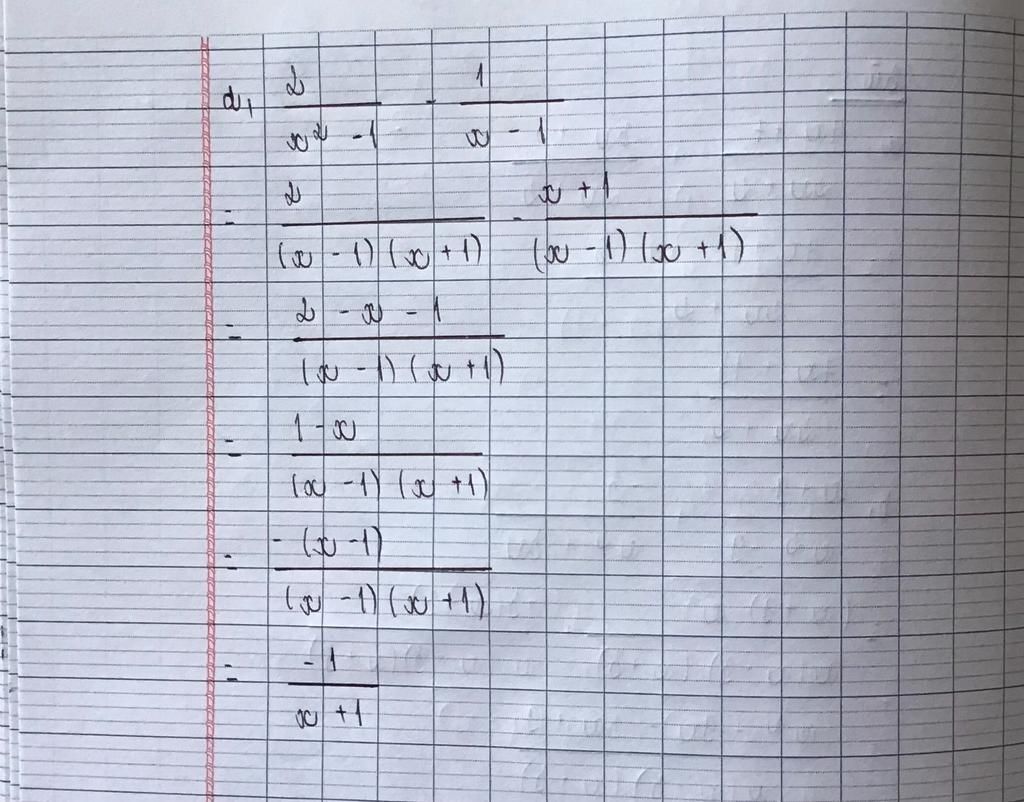 d, 2/(x² - 1) - 1/(x - 1)
= 2/((x - 1)(x + 1)) - (x + 1)/((x - 1)(x + 1))
= (2 - x - 1)/((x - 1)(x + 1))
= (1 - x)/((x - 1)(x + 1))
= -(x - 1)/((x - 1)(x + 1))
= -1/(x + 1)